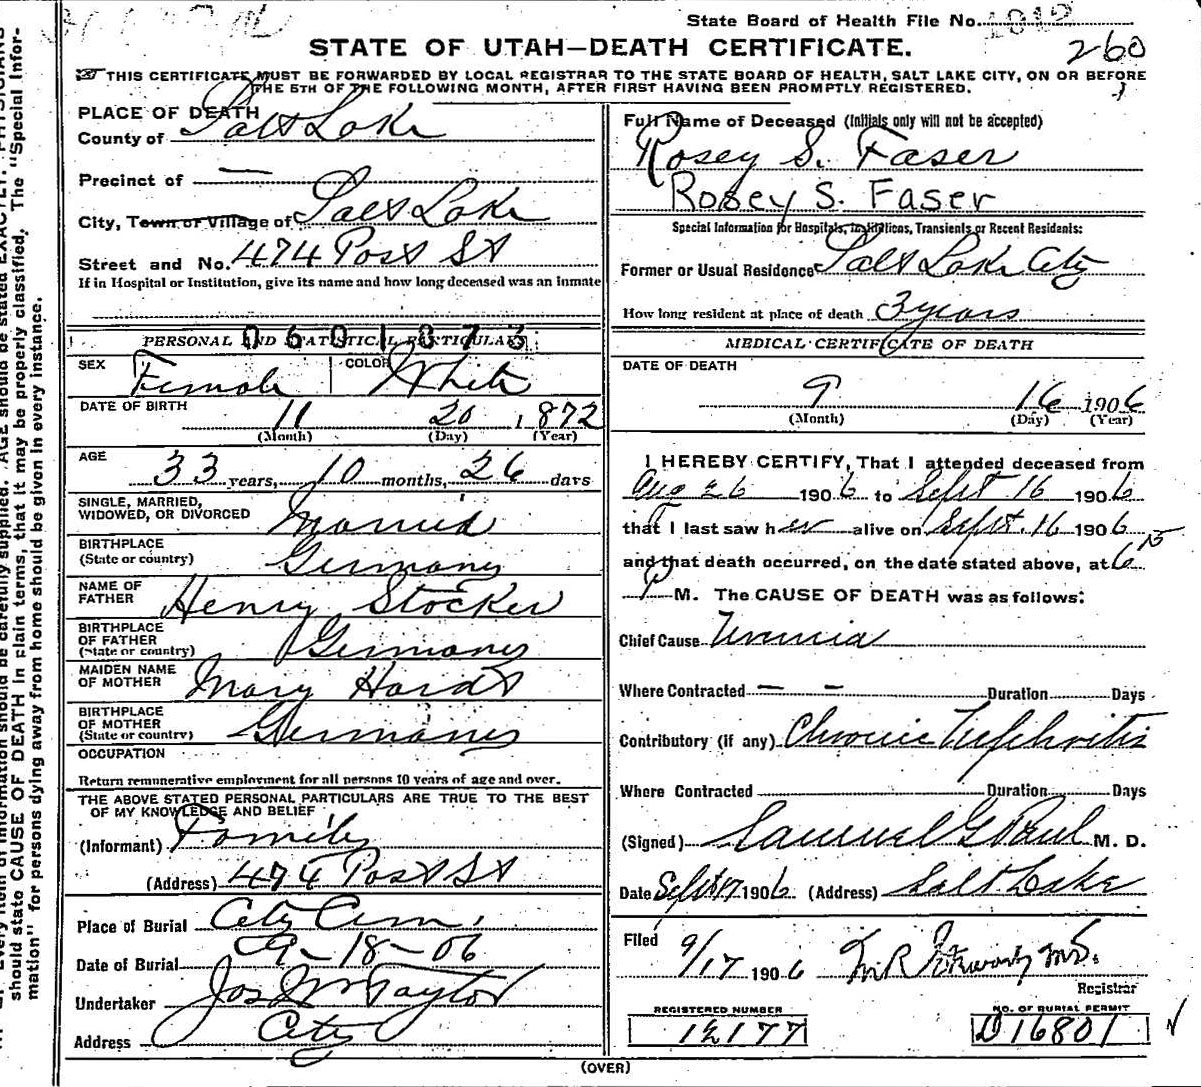 State Board of Health File No. 1812
260
STATE OF UTAH—DEATH CERTIFICATE.
THIS CERTIFICATE MUST BE FORWARDED BY LOCAL REGISTRAR TO THE STATE BOARD OF HEALTH, SALT LAKE CITY, ON OR BEFORE
THE 5TH OF THE FOLLOWING MONTH, AFTER FIRST HAVING BEEN PROMPTLY REGISTERED.
PLACE OF DEATH
County of Salt Lake
Precinct of —
City, Town or Village of Salt Lake
Street and No. 474 Post St
If in Hospital or Institution, give its name and how long deceased was an inmate
0601873
PERSONAL AND STATISTICAL PARTICULARS
SEX Female COLOR White
DATE OF BIRTH 11 20 1872
(Month) (Day) (Year)
AGE 33 years, 10 months, 26 days
SINGLE, MARRIED,
WIDOWED, OR DIVORCED Married
BIRTHPLACE
(State or country) Germany
NAME OF
FATHER Henry Stocker
BIRTHPLACE
OF FATHER
(State or country) Germany
MAIDEN NAME
OF MOTHER Mary Hardt
BIRTHPLACE
OF MOTHER
(State or country) Germany
OCCUPATION
Return remunerative employment for all persons 10 years of age and over.
THE ABOVE STATED PERSONAL PARTICULARS ARE TRUE TO THE BEST
OF MY KNOWLEDGE AND BELIEF
(Informant) Family
(Address) 474 Post St
Place of Burial City Cem.
Date of Burial 9-18-06
Undertaker Jos Wm Taylor
Address City
Full Name of Deceased (Initials only will not be accepted)
Rosey S. Faser
Rosey S. Faser
Special Information for Hospitals, Institutions, Transients or Recent Residents:
Former or Usual Residence Salt Lake City
How long resident at place of death 3 years
MEDICAL CERTIFICATE OF DEATH
DATE OF DEATH
9 16 1906
(Month) (Day) (Year)
I HEREBY CERTIFY, That I attended deceased from
Aug 26 1906 to Sept 16 1906
that I last saw her alive on Sept. 16 1906
and that death occurred, on the date stated above, at 6 15
P M. The CAUSE OF DEATH was as follows:
Chief Cause Uremia
Where Contracted — — Duration Days
Contributory (if any) Chronic Nephritis
Where Contracted Duration Days
(Signed) Samuel G Paul M. D.
Date Sept 17 1906 (Address) Salt Lake
Filed 9/17 1906 M.D.
Registrar
REGISTERED NUMBER
12177
NO. OF BURIAL PERMIT
D16801
(OVER)
should state CAUSE OF DEATH in plain terms, that it may be properly classified. The "Special Infor-
mation" for persons dying away from home should be given in every instance.